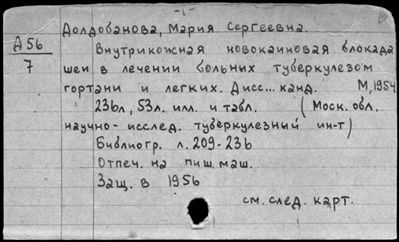 Долдобанова, Мария Сергеевна.
Д56
7
Внутрикожная новокаиновая блокада
шеи в лечении больных туберкулезом
гортани и легких. Дисс... канд. М, 1954
236л, 53л. илл. и табл. (Моск. обл.
научно-исслед. туберкулезный ин-т)
Библиогр. л. 209-236
Отпеч. на пиш. маш.
Защ. в 1956
см. след. карт.